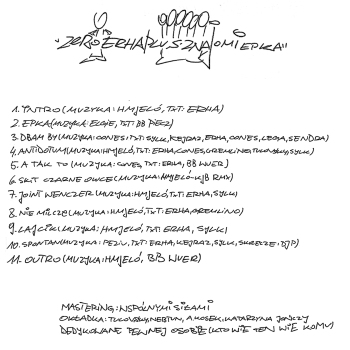 "ZERO ERHA/KV S-ZNAJOMI EPKA"
1. YNTRO (MUZYKA: HMJELÓ, TXT: ERHA)
2. EPKA (MUZYKA: , TXT: BB PEZ)
3. DBAM BY (MUZYKA: CONES; TXT: SYLK, KEJRAZ, ERHA, CONES, LEGIA, SENDRA)
4. ANTIDOTUM (MUZYKA: HMJELÓ, TXT: ERHA, CONES, GREMLINO, , SYLK)
5. A TAK TO (MUZYKA: CONES, TXT: ERHA, BB WVER)
6. SKIT CZARNE OWCE (MUZYKA: HMJELÓ - KJB RMX)
7. JOINT WENCZER (MUZYKA: HMJELÓ, TXT: ERHA, SYLK)
8. NIE MILCZĘ (MUZYKA: HMJELÓ, TXT: ERHA, GREMLINO)
9. LAJCIK (MUZYKA: HMJELÓ, TXT: ERHA, SYLK)
10. SPONTAN (MUZYKA: PEZIV, TXT: ERHA, KEJRAZ, SYLK, SKRECZE: DJP)
11. OUTRO (MUZYKA: HMJELÓ, B/B WVER)
MASTERING: WSPÓLNYMI SIŁAMI
OKŁADKA: , A. MOSEK, KATARZYNA
DEDYKOWANE PEWNEJ OSOBIE (KTO WIE TEN WIE KOMU)